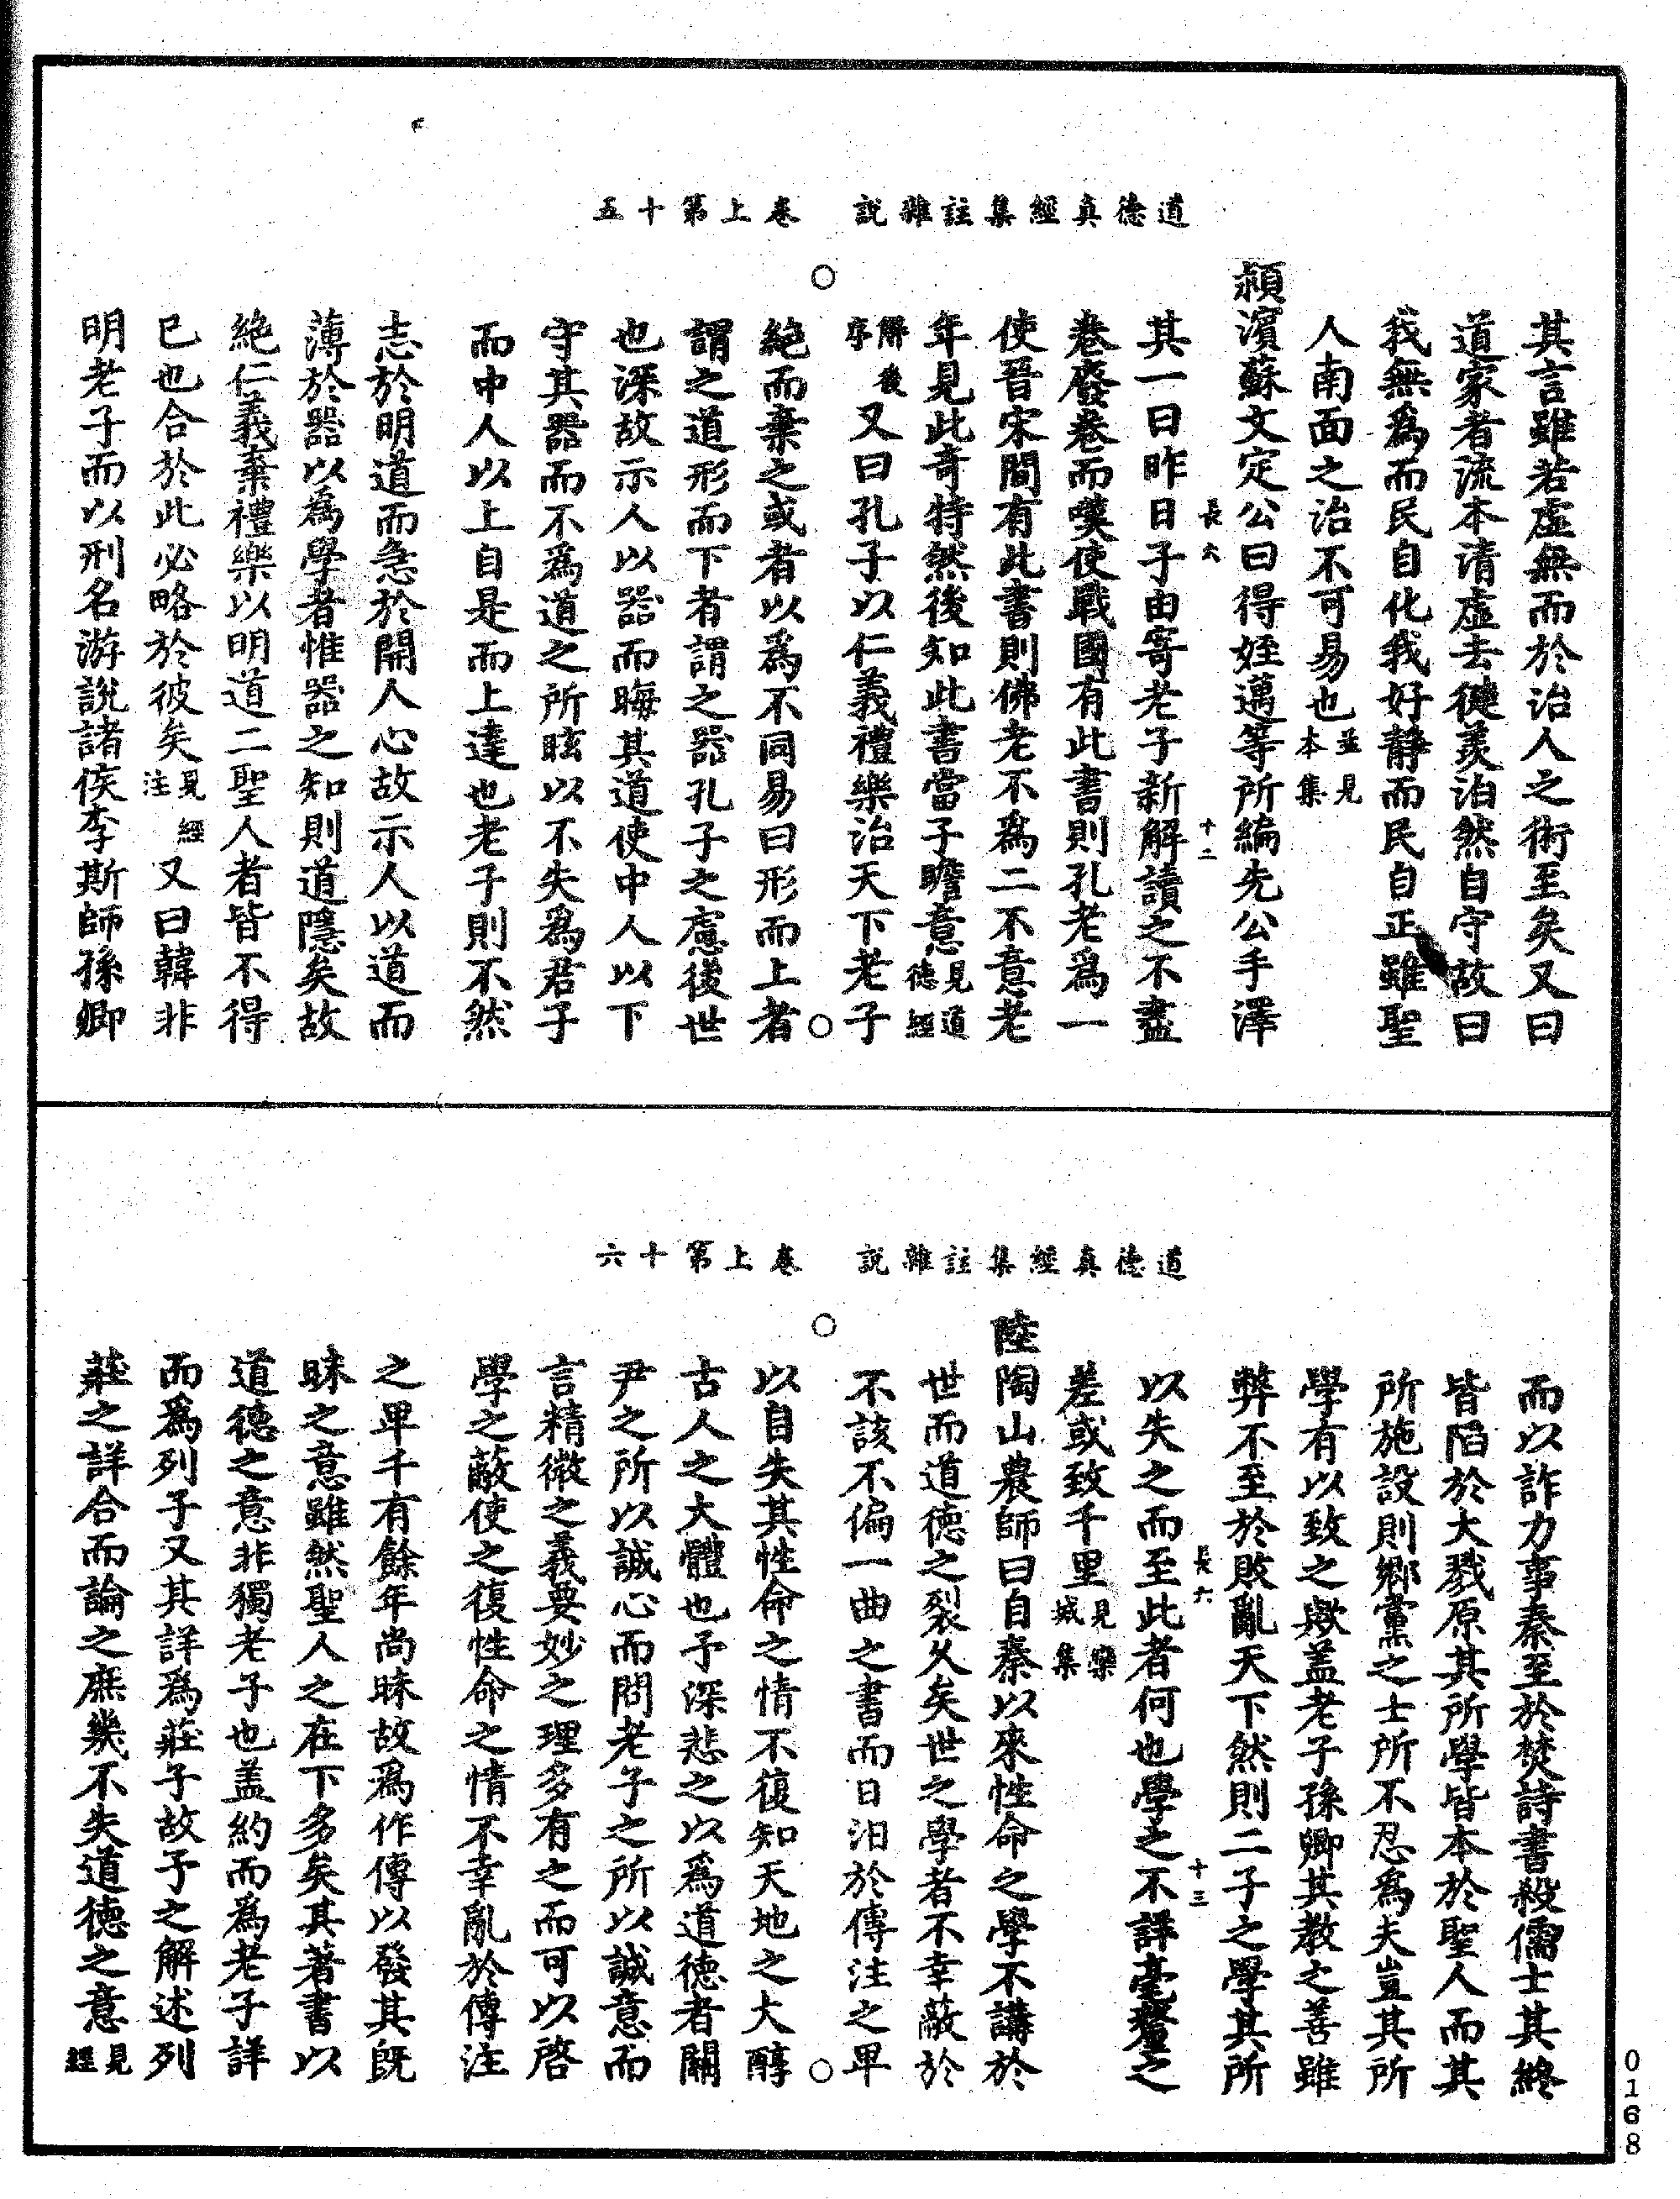 道德真經集註雜說　卷上第十五
其言雖若虛無而於治人之術至矣又曰
道家者流本清虛去健羨泊然自守故曰
我無爲而民自化我好靜而民自正雖聖
人南面之治不可易也並見本集
潁濱蘇文定公曰得姪邁等所編先公手澤
長六　十二
其一曰昨日子由寄老子新解讀之不盡
卷廢卷而嘆使戰國有此書則孔老爲一
使晉宋間有此書則佛老不爲二不意老
年見此奇特然後知此書當子瞻意見道德經
解後序又曰孔子以仁義禮樂治天下老子
絕而棄之或者以爲不同易曰形而上者
謂之道形而下者謂之器孔子之慮後世
也深故示人以器而晦其道使中人以下
守其器而不爲道之所眩以不失爲君子
而中人以上自是而上達也老子則不然
志於明道而急於開人心故示人以道而
薄於器以為學者惟器之知則道隱矣故
絕仁義棄禮樂以明道二聖人者皆不得
已也合於此必略於彼矣見經注又曰韓非
明老子而以刑名游說諸侯李斯師孫卿
道德真經集註雜說　卷上第十六
而以詐力事秦至於焚詩書殺儒士其終
皆陷於大戮原其所學皆本於聖人而其
所施設則鄉黨之士所不忍爲夫豈其所
學有以致之歟盖老子孫卿其教之善雖
弊不至於敗亂天下然則二子之學其所
長六　十三
以失之而至此者何也學之不詳毫釐之
差或致千里見欒城集
陸陶山農師曰自秦以來性命之學不講於
世而道德之裂久矣世之學者不幸蔽於
不該不偏一曲之書而日汨於傳注之卑
以自失其性命之情不復知天地之大醇
古人之大體也予深悲之以爲道德者關
尹之所以誠心而問老子之所以誠意而
言精微之義要妙之理多有之而可以啓
學之蔽使之復性命之情不幸亂於傳注
之卑千有餘年尚昧故爲作傳以發其旣
昧之意雖然聖人之在下多矣其著書以
道德之意非獨老子也盖約而爲老子詳
而爲列子又其詳爲莊子故予之解述列
莊之詳合而論之庶幾不失道德之意見經
0168